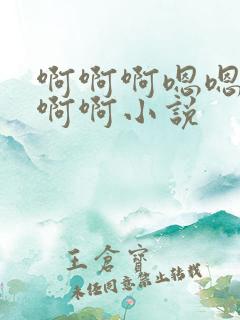 啊啊啊嗯嗯
啊啊小说
王倉寶
未经同意禁止转载